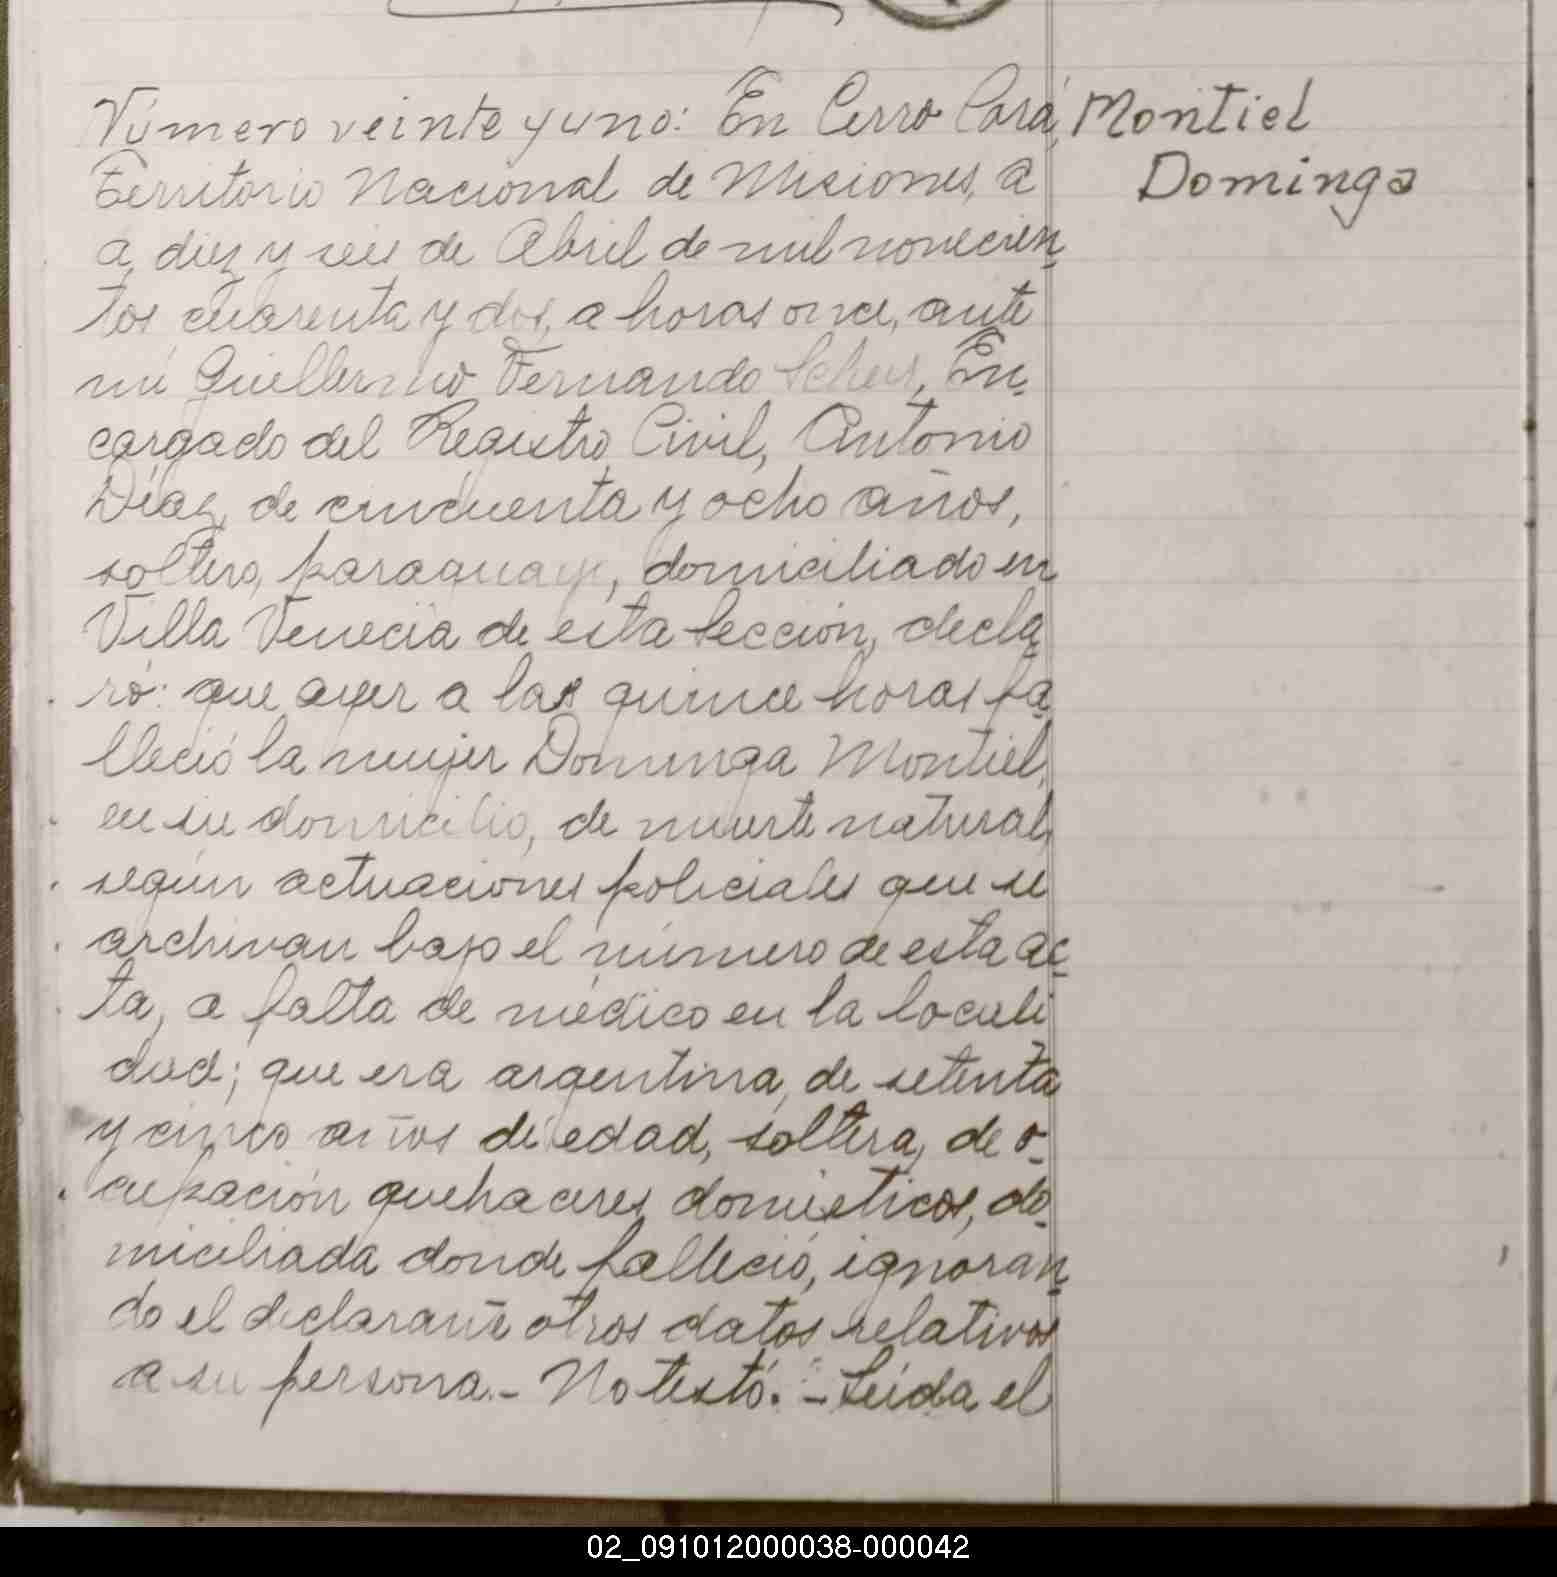 Número veinte y uno: En Cerro Corá,
Territorio Nacional de Misiones, a
a diez y seis de Abril de mil novecien-
tos cuarenta y dos, a horas once, ante
mí Guillermo Fernando En-
cargado del Registro Civil, Antonio
Díaz, de cincuenta y ocho años,
soltero, paraguayo, domiciliado en
Villa Venecia de esta Sección, decla-
ró: que ayer a las quince horas fa-
lleció la mujer Dominga Montiel,
en su domicilio, de muerte natural,
según actuaciones policiales que se
archivan bajo el número de esta ac-
ta, a falta de médico en la locali
dad; que era argentina, de setenta
y cinco años de edad, soltera, de o-
cupación quehaceres domésticos, do-
miciliada donde falleció, ignoran-
do el declarante otros datos relativos
a su persona.- No testó.- Leída el
Montiel
Dominga
02_091012000038-000042